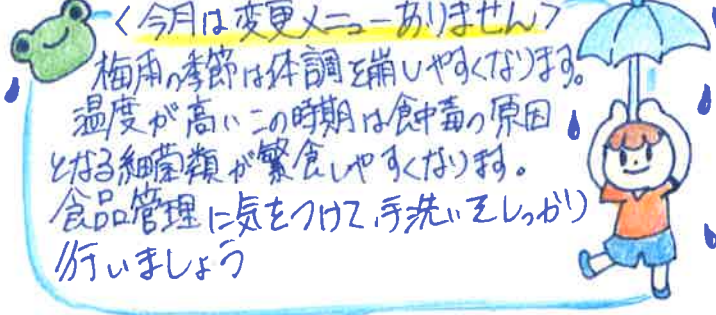 <今月は変更メニューありません>
梅雨の季節は体調を崩しやすくなります。
温度が高いこの時期は食中毒の原因
となる細菌類が繁食しやすくなります。
食品管理に気をつけて、手洗いをしっかり
行いましょう